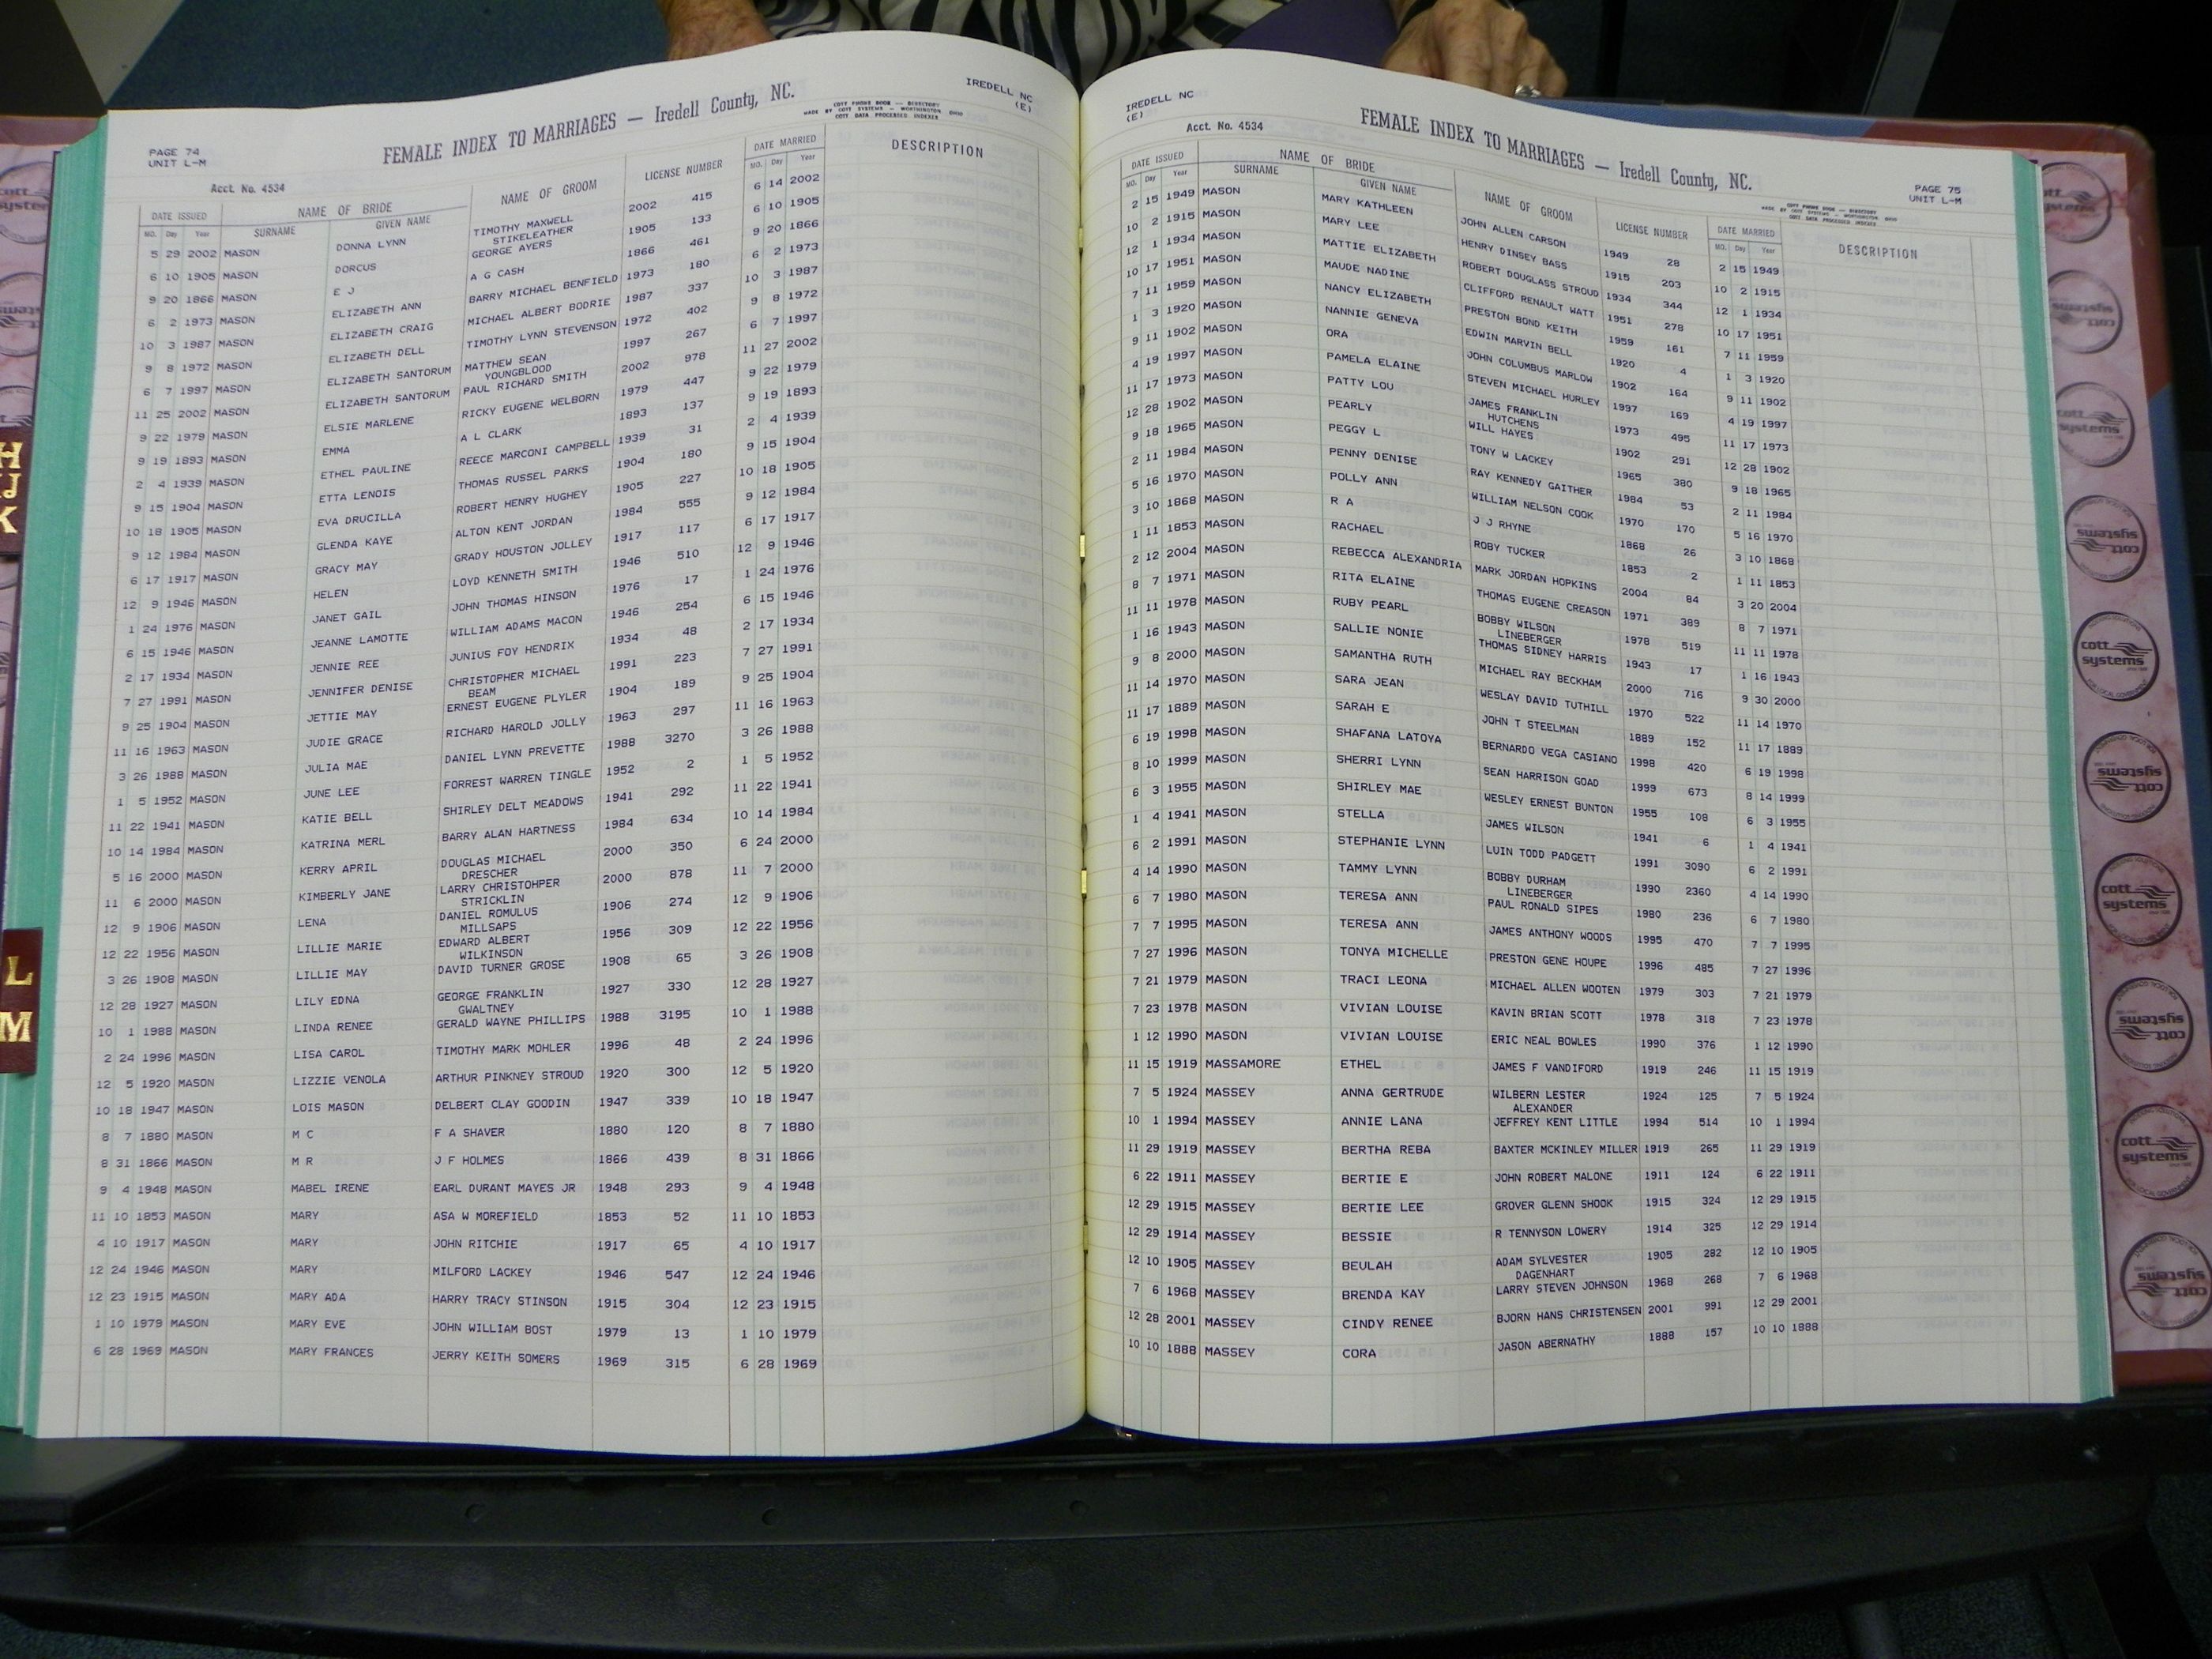 IREDELL NC
(E)
FEMALE INDEX TO MARRIAGES — Iredell County, NC.
COTT PHONE BOOK — DIRECTORY
MADE BY COTT SYSTEMS — WORTHINGTON OHIO
COTT DATA PROCESSED INDEXES
PAGE 74
UNIT L-M
Acct. No. 4534
DATE ISSUED NAME OF BRIDE NAME OF GROOM LICENSE NUMBER DATE MARRIED DESCRIPTION
MO. Day Year SURNAME GIVEN NAME MO. Day Year
5 29 2002 MASON DONNA LYNN TIMOTHY MAXWELL 2002 415 6 14 2002
STIKELEATHER
6 10 1905 MASON DORCUS GEORGE AYERS 1905 133 6 10 1905
9 20 1866 MASON E J A G CASH 1866 461 9 20 1866
6 2 1973 MASON ELIZABETH ANN BARRY MICHAEL BENFIELD 1973 180 6 2 1973
10 3 1987 MASON ELIZABETH CRAIG MICHAEL ALBERT BODRIE 1987 337 10 3 1987
9 8 1972 MASON ELIZABETH DELL TIMOTHY LYNN STEVENSON 1972 402 9 8 1972
6 7 1997 MASON ELIZABETH SANTORUM MATTHEW SEAN 1997 267 6 7 1997
YOUNGBLOOD
11 25 2002 MASON ELIZABETH SANTORUM PAUL RICHARD SMITH 2002 978 11 27 2002
9 22 1979 MASON ELSIE MARLENE RICKY EUGENE WELBORN 1979 447 9 22 1979
9 19 1893 MASON EMMA A L CLARK 1893 137 9 19 1893
2 4 1939 MASON ETHEL PAULINE REECE MARCONI CAMPBELL 1939 31 2 4 1939
9 15 1904 MASON ETTA LENOIS THOMAS RUSSEL PARKS 1904 180 9 15 1904
10 18 1905 MASON EVA DRUCILLA ROBERT HENRY HUGHEY 1905 227 10 18 1905
9 12 1984 MASON GLENDA KAYE ALTON KENT JORDAN 1984 555 9 12 1984
6 17 1917 MASON GRACY MAY GRADY HOUSTON JOLLEY 1917 117 6 17 1917
12 9 1946 MASON HELEN LOYD KENNETH SMITH 1946 510 12 9 1946
1 24 1976 MASON JANET GAIL JOHN THOMAS HINSON 1976 17 1 24 1976
6 15 1946 MASON JEANNE LAMOTTE WILLIAM ADAMS MACON 1946 254 6 15 1946
2 17 1934 MASON JENNIE REE JUNIUS FOY HENDRIX 1934 48 2 17 1934
7 27 1991 MASON JENNIFER DENISE CHRISTOPHER MICHAEL 1991 223 7 27 1991
BEAM
9 25 1904 MASON JETTIE MAY ERNEST EUGENE PLYLER 1904 189 9 25 1904
11 16 1963 MASON JUDIE GRACE RICHARD HAROLD JOLLY 1963 297 11 16 1963
3 26 1988 MASON JULIA MAE DANIEL LYNN PREVETTE 1988 3270 3 26 1988
1 5 1952 MASON JUNE LEE FORREST WARREN TINGLE 1952 2 1 5 1952
11 22 1941 MASON KATIE BELL SHIRLEY DELT MEADOWS 1941 292 11 22 1941
10 14 1984 MASON KATRINA MERL BARRY ALAN HARTNESS 1984 634 10 14 1984
5 16 2000 MASON KERRY APRIL DOUGLAS MICHAEL 2000 350 6 24 2000
DRESCHER
11 6 2000 MASON KIMBERLY JANE LARRY CHRISTOHPER 2000 878 11 7 2000
STRICKLIN
12 9 1906 MASON LENA DANIEL ROMULUS 1906 274 12 9 1906
MILLSAPS
12 22 1956 MASON LILLIE MARIE EDWARD ALBERT 1956 309 12 22 1956
WILKINSON
3 26 1908 MASON LILLIE MAY DAVID TURNER GROSE 1908 65 3 26 1908
12 28 1927 MASON LILY EDNA GEORGE FRANKLIN 1927 330 12 28 1927
GWALTNEY
10 1 1988 MASON LINDA RENEE GERALD WAYNE PHILLIPS 1988 3195 10 1 1988
2 24 1996 MASON LISA CAROL TIMOTHY MARK MOHLER 1996 48 2 24 1996
12 5 1920 MASON LIZZIE VENOLA ARTHUR PINKNEY STROUD 1920 300 12 5 1920
10 18 1947 MASON LOIS MASON DELBERT CLAY GOODIN 1947 339 10 18 1947
8 7 1880 MASON M C F A SHAVER 1880 120 8 7 1880
8 31 1866 MASON M R J F HOLMES 1866 439 8 31 1866
9 4 1948 MASON MABEL IRENE EARL DURANT MAYES JR 1948 293 9 4 1948
11 10 1853 MASON MARY ASA W MOREFIELD 1853 52 11 10 1853
4 10 1917 MASON MARY JOHN RITCHIE 1917 65 4 10 1917
12 24 1946 MASON MARY MILFORD LACKEY 1946 547 12 24 1946
12 23 1915 MASON MARY ADA HARRY TRACY STINSON 1915 304 12 23 1915
1 10 1979 MASON MARY EVE JOHN WILLIAM BOST 1979 13 1 10 1979
6 28 1969 MASON MARY FRANCES JERRY KEITH SOMERS 1969 315 6 28 1969
IREDELL NC
(E)
Acct. No. 4534
FEMALE INDEX TO MARRIAGES — Iredell County, NC.
COTT PHONE BOOK — DIRECTORY
MADE BY COTT SYSTEMS — WORTHINGTON OHIO
COTT DATA PROCESSED INDEXES
PAGE 75
UNIT L-M
DATE ISSUED NAME OF BRIDE NAME OF GROOM LICENSE NUMBER DATE MARRIED DESCRIPTION
MO. Day Year SURNAME GIVEN NAME MO. Day Year
2 15 1949 MASON MARY KATHLEEN JOHN ALLEN CARSON 1949 28 2 15 1949
10 2 1915 MASON MARY LEE HENRY DINSEY BASS 1915 203 10 2 1915
12 1 1934 MASON MATTIE ELIZABETH ROBERT DOUGLASS STROUD 1934 344 12 1 1934
10 17 1951 MASON MAUDE NADINE CLIFFORD RENAULT WATT 1951 278 10 17 1951
7 11 1959 MASON NANCY ELIZABETH PRESTON BOND KEITH 1959 161 7 11 1959
1 3 1920 MASON NANNIE GENEVA EDWIN MARVIN BELL 1920 4 1 3 1920
9 11 1902 MASON ORA JOHN COLUMBUS MARLOW 1902 164 9 11 1902
4 19 1997 MASON PAMELA ELAINE STEVEN MICHAEL HURLEY 1997 169 4 19 1997
11 17 1973 MASON PATTY LOU JAMES FRANKLIN 1973 495 11 17 1973
HUTCHENS
12 28 1902 MASON PEARLY WILL HAYES 1902 291 12 28 1902
9 18 1965 MASON PEGGY L TONY W LACKEY 1965 380 9 18 1965
2 11 1984 MASON PENNY DENISE RAY KENNEDY GAITHER 1984 53 2 11 1984
5 16 1970 MASON POLLY ANN WILLIAM NELSON COOK 1970 170 5 16 1970
3 10 1868 MASON R A J J RHYNE 1868 26 3 10 1868
1 11 1853 MASON RACHAEL ROBY TUCKER 1853 2 1 11 1853
2 12 2004 MASON REBECCA ALEXANDRIA MARK JORDAN HOPKINS 2004 84 3 20 2004
8 7 1971 MASON RITA ELAINE THOMAS EUGENE CREASON 1971 389 8 7 1971
11 11 1978 MASON RUBY PEARL BOBBY WILSON 1978 519 11 11 1978
LINEBERGER
1 16 1943 MASON SALLIE NONIE THOMAS SIDNEY HARRIS 1943 17 1 16 1943
9 8 2000 MASON SAMANTHA RUTH MICHAEL RAY BECKHAM 2000 716 9 30 2000
11 14 1970 MASON SARA JEAN WESLAY DAVID TUTHILL 1970 522 11 14 1970
11 17 1889 MASON SARAH E JOHN T STEELMAN 1889 152 11 17 1889
6 19 1998 MASON SHAFANA LATOYA BERNARDO VEGA CASIANO 1998 420 6 19 1998
8 10 1999 MASON SHERRI LYNN SEAN HARRISON GOAD 1999 673 8 14 1999
6 3 1955 MASON SHIRLEY MAE WESLEY ERNEST BUNTON 1955 108 6 3 1955
1 4 1941 MASON STELLA JAMES WILSON 1941 6 1 4 1941
6 2 1991 MASON STEPHANIE LYNN LUIN TODD PADGETT 1991 3090 6 2 1991
4 14 1990 MASON TAMMY LYNN BOBBY DURHAM 1990 2360 4 14 1990
LINEBERGER
6 7 1980 MASON TERESA ANN PAUL RONALD SIPES 1980 236 6 7 1980
7 7 1995 MASON TERESA ANN JAMES ANTHONY WOODS 1995 470 7 7 1995
7 27 1996 MASON TONYA MICHELLE PRESTON GENE HOUPE 1996 485 7 27 1996
7 21 1979 MASON TRACI LEONA MICHAEL ALLEN WOOTEN 1979 303 7 21 1979
7 23 1978 MASON VIVIAN LOUISE KAVIN BRIAN SCOTT 1978 318 7 23 1978
1 12 1990 MASON VIVIAN LOUISE ERIC NEAL BOWLES 1990 376 1 12 1990
11 15 1919 MASSAMORE ETHEL JAMES F VANDIFORD 1919 246 11 15 1919
7 5 1924 MASSEY ANNA GERTRUDE WILBERN LESTER 1924 125 7 5 1924
ALEXANDER
10 1 1994 MASSEY ANNIE LANA JEFFREY KENT LITTLE 1994 514 10 1 1994
11 29 1919 MASSEY BERTHA REBA BAXTER MCKINLEY MILLER 1919 265 11 29 1919
6 22 1911 MASSEY BERTIE E JOHN ROBERT MALONE 1911 124 6 22 1911
12 29 1915 MASSEY BERTIE LEE GROVER GLENN SHOOK 1915 324 12 29 1915
12 29 1914 MASSEY BESSIE R TENNYSON LOWERY 1914 325 12 29 1914
12 10 1905 MASSEY BEULAH ADAM SYLVESTER 1905 282 12 10 1905
DAGENHART
7 6 1968 MASSEY BRENDA KAY LARRY STEVEN JOHNSON 1968 268 7 6 1968
12 28 2001 MASSEY CINDY RENEE BJORN HANS CHRISTENSEN 2001 991 12 29 2001
10 10 1888 MASSEY CORA JASON ABERNATHY 1888 157 10 10 1888
H
J
K
L
M
cott
systems
FOR LOCAL GOVERNMENT
cott
systems
cott
systems
FOR LOCAL GOVERNMENT
cott
systems